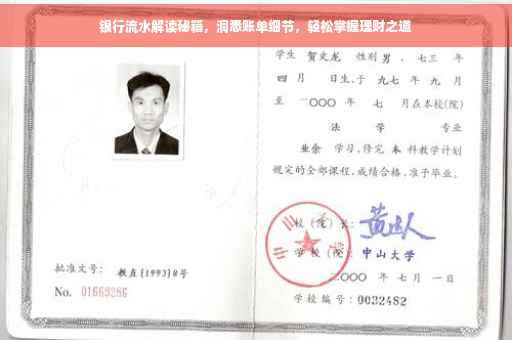 银行流水解读秘籍，洞悉账单细节，轻松掌握理财之道
学生 贺文龙 性别 男，七三 年
四 月 日生，于 九七 年 九 月
至 二000 年 七 月在本校(院)
法 学 专业
业余 学习，修完 本 科教学计划
规定的全部课程，成绩合格，准予毕业。
校（院）长：
学 校（院）： 中山大学
批准文号： 教直[1993]8号
二000 年 七 月 一 日
No. 01669286
学校编号：0032482